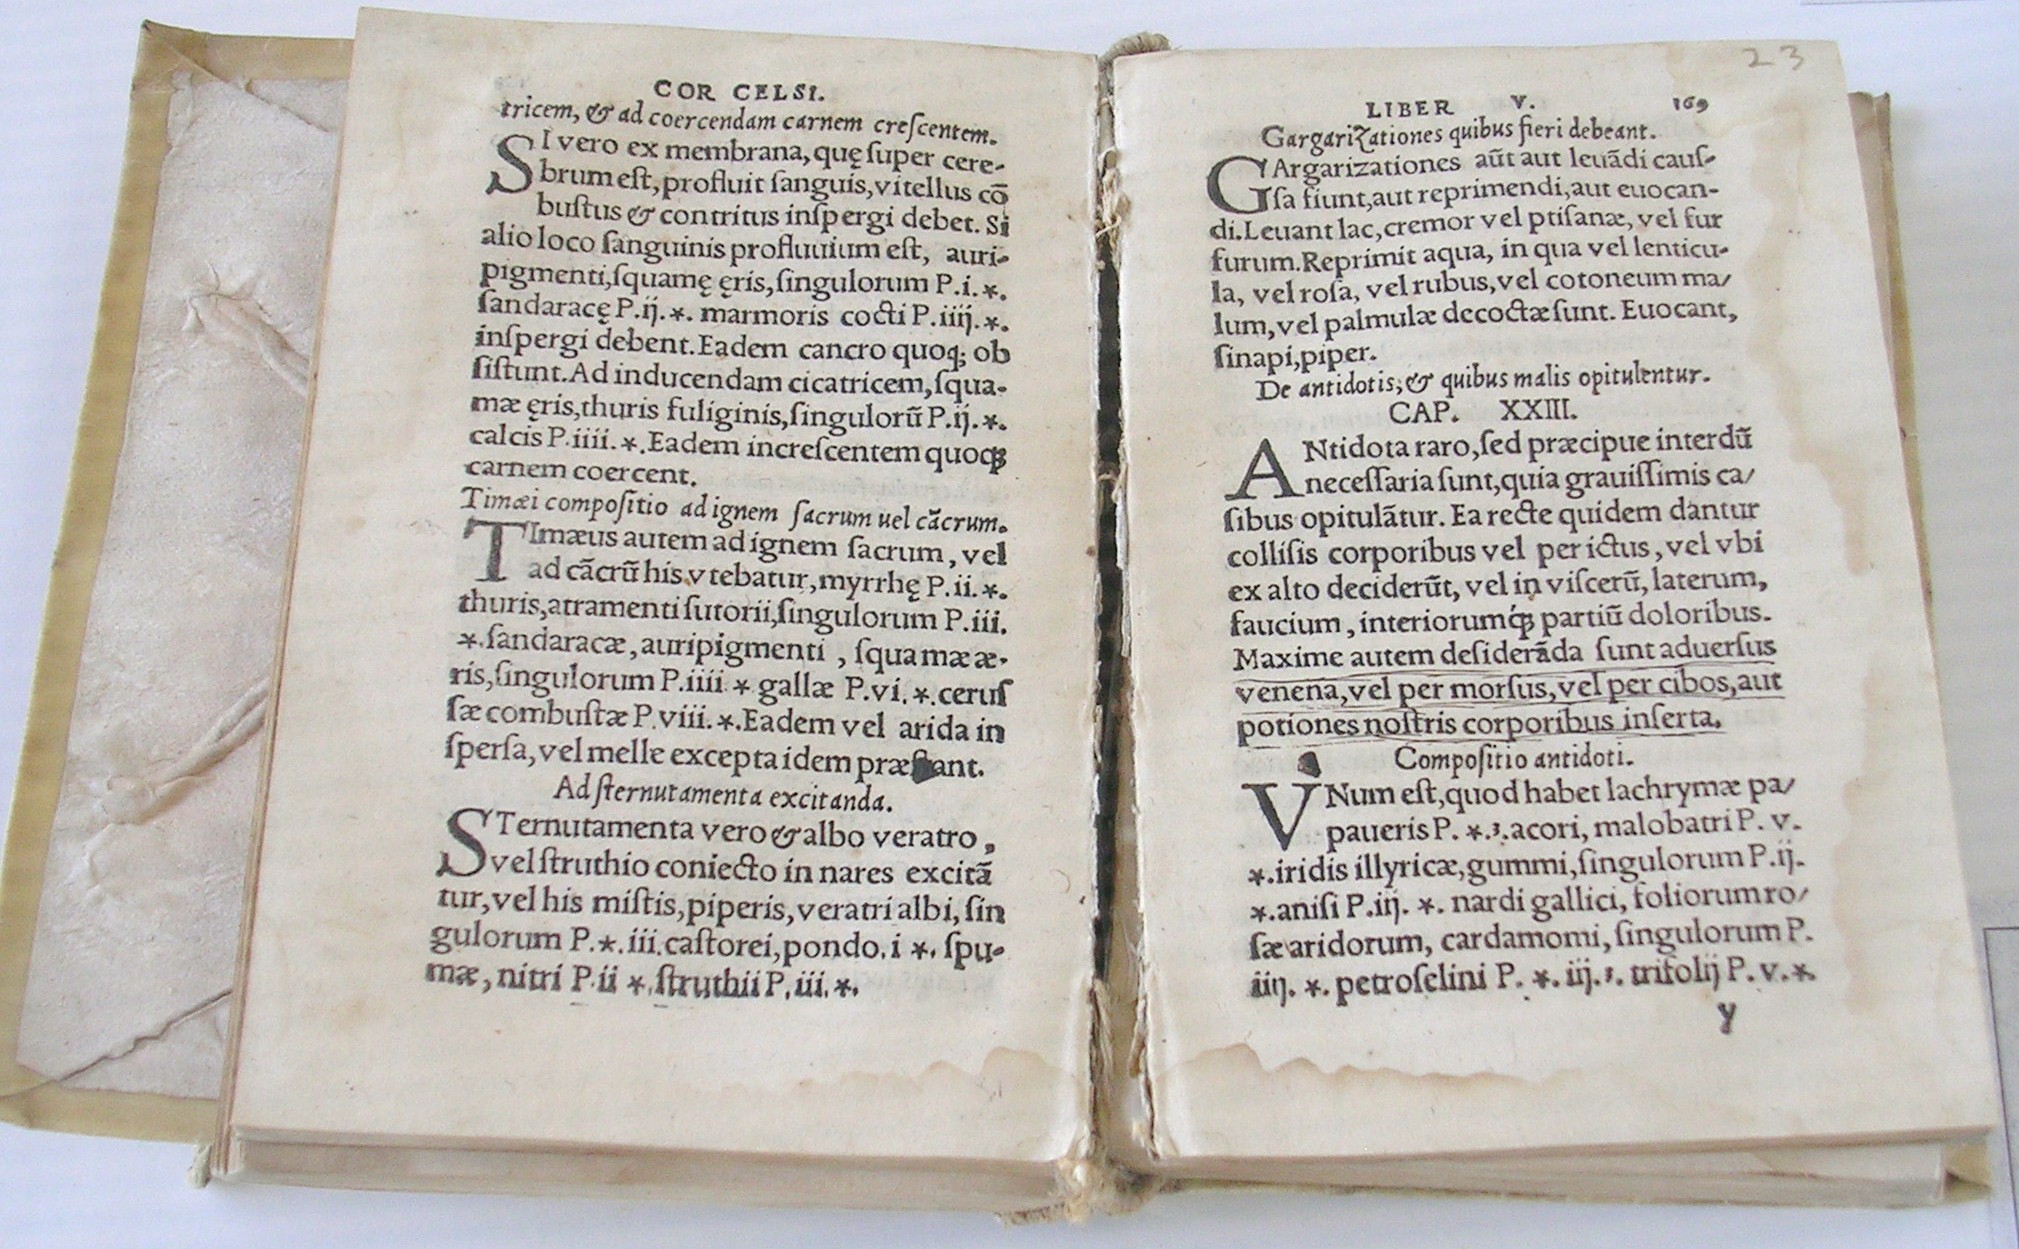 COR CELSI.
tricem, & ad coercendam carnem creſcentem.
SI vero ex membrana, quę ſuper cere-
brum eſt, profluit ſanguis, vitellus cō
buſtus & contritus inſpergi debet. Si
alio loco ſanguinis profluuium eſt, auri-
pigmenti, ſquamę ęris, ſingulorum P.i.*.
ſandaracę P.ij.*. marmoris cocti P.iiij.*.
inſpergi debent. Eadem cancro quoq; ob
ſiſtunt. Ad inducendam cicatricem, ſqua-
mæ ęris, thuris fuliginis, ſingulorū P.ij.*.
calcis P.iiii.*. Eadem increſcentem quoqꝫ
carnem coercent.
Timæi compoſitio ad ignem ſacrum uel cācrum.
TImæus autem ad ignem ſacrum, vel
ad cācrū his vtebatur, myrrhę P.ii.*.
thuris, atramenti ſutorii, ſingulorum P.iii.
*. ſandaracæ, auripigmenti, ſquamæ æ-
ris, ſingulorum P.iiii.* gallæ P.vi.*. ceruſ
ſæ combuſtæ P.viii.*. Eadem vel arida in
ſperſa, vel melle excepta idem præſtant.
Ad ſternutamenta excitanda.
STernutamenta vero & albo veratro,
vel ſtruthio coniecto in nares excitā
tur, vel his miſtis, piperis, veratri albi, ſin
gulorum P.*.iii. caſtorei, pondo.i *. ſpu-
mæ, nitri P.ii *. ſtruthii P.iii.*.
23
LIBER V. 169
Gargarizationes quibus fieri debeant.
GArgarizationes aūt aut leuādi cauſ-
ſa fiunt, aut reprimendi, aut euocan-
di. Leuant lac, cremor vel ptiſanæ, vel fur
furum. Reprimit aqua, in qua vel lenticu-
la, vel roſa, vel rubus, vel cotoneum ma/
lum, vel palmulæ decoctæ ſunt. Euocant,
ſinapi, piper.
De antidotis, & quibus malis opitulentur.
CAP. XXIII.
ANtidota raro, ſed præcipue interdū
neceſſaria ſunt, quia grauiſſimis ca/
ſibus opitulātur. Ea recte quidem dantur
colliſis corporibus vel per ictus, vel vbi
ex alto deciderūt, vel in viſcerū, laterum,
faucium, interiorumqꝫ partiū doloribus.
Maxime autem deſiderāda ſunt aduerſus
venena, vel per morſus, vel per cibos, aut
potiones noſtris corporibus inſerta.
Compoſitio antidoti.
VNum eſt, quod habet lachrymæ pa/
paueris P. *.ʒ. acori, malobatri P. v.
*. iridis illyricæ, gummi, ſingulorum P.ij.
*. aniſi P.iij. *. nardi gallici, foliorum ro/
ſæ aridorum, cardamomi, ſingulorum P.
iiij. *. petroſelini P. *. iij.ʒ. trifolij P. v.*.
y